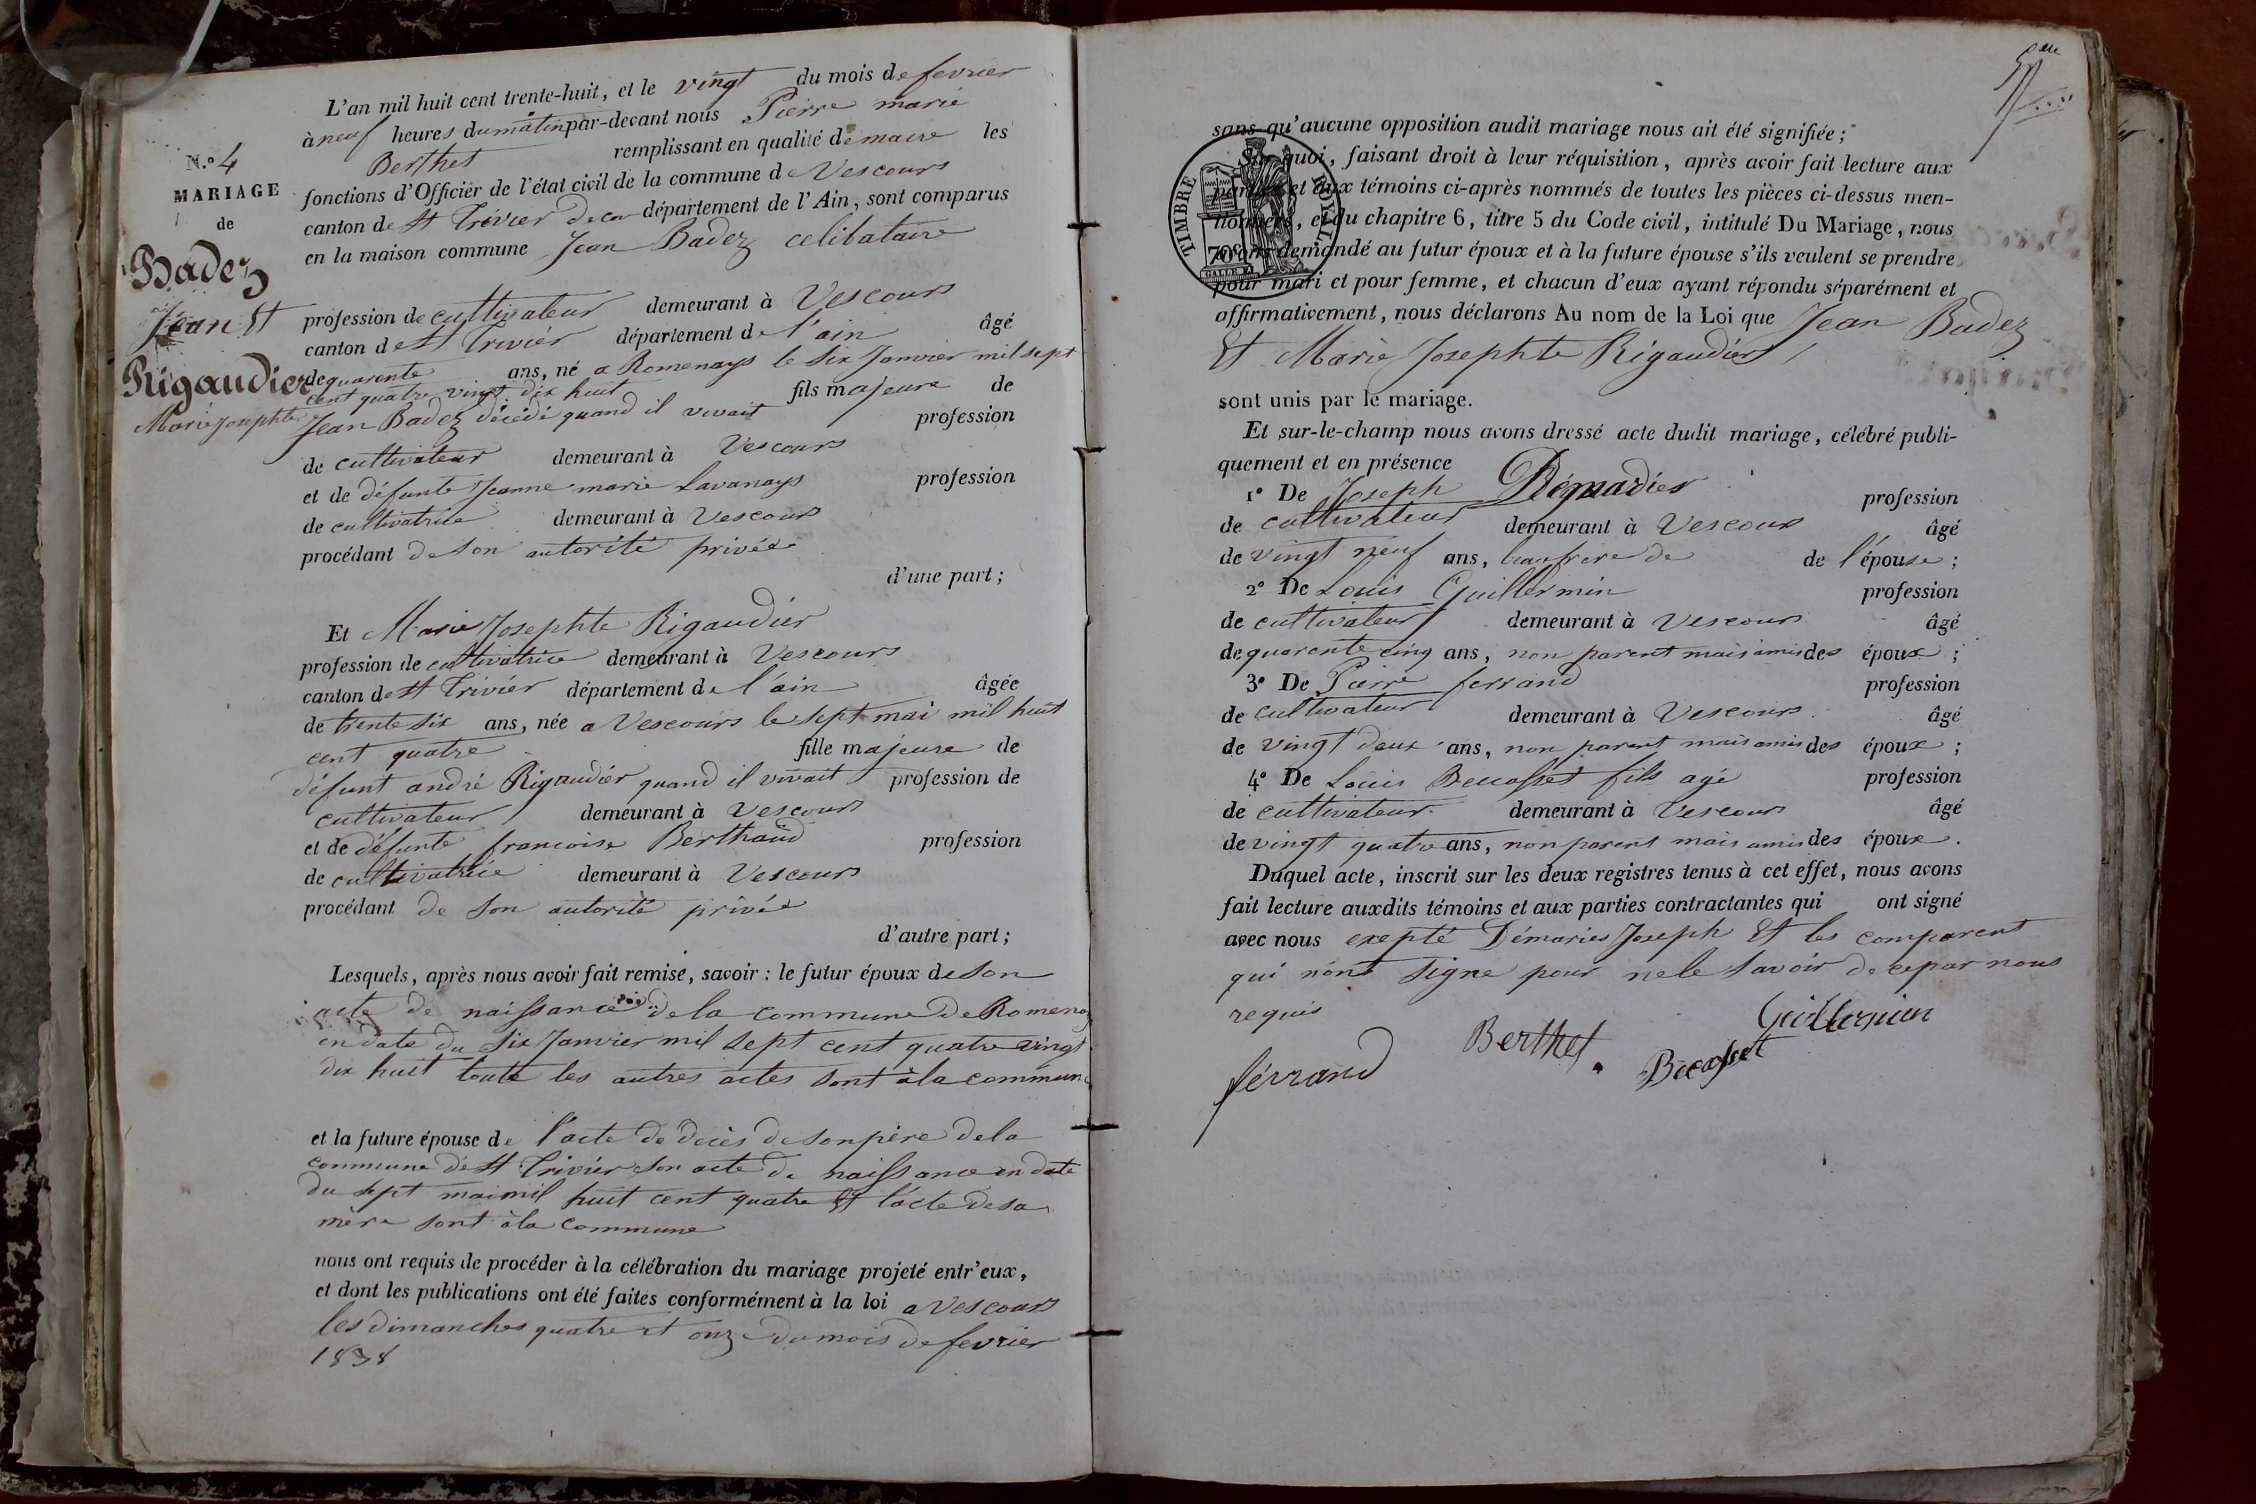 N.o 4
MARIAGE
de
Badez
Jean Et
Rigaudier
Marie Josephte
L'an mil huit cent trente-huit, et le vingt du mois de fevrier
à neuf heures du matin par-devant nous Pierre marie
Berthet remplissant en qualité de maire les
fonctions d'Officier de l'état civil de la commune de Vescours
canton de St Trivier de co département de l'Ain, sont comparus
en la maison commune Jean Badez celibataire
profession de cultivateur demeurant à Vescours
canton de St Trivier département de l'ain âgé
de quarente ans, né a Romenays le six Janvier mil sept
cent quatre vingt dix huit fils majeure de
Jean Badez décédé quand il vivait profession
de cultivateur demeurant à Vescours
et de défunte Jeanne marie Lavanays profession
de cultivatrice demeurant à Vescours
procédant de son autorité privée
d'une part ;
Et Marie Josephte Rigaudier
profession de cultivatrice demeurant à Vescours
canton de St Trivier département de l'ain âgée
de trente six ans, née a Vescours le sept mai mil huit
cent quatre fille majeure de
défunt andré Rigaudier quand il vivait profession de
cultivateur demeurant à Vescours
et de défunte francoise Berthaud profession
de cultivatrice demeurant à Vescours
procédant de son autorité privée
d'autre part ;
Lesquels, après nous avoir fait remise, savoir : le futur époux de son
acte de naissance de la commune de Romenay
en date du Six Janvier mil sept cent quatre vingt
dix huit toute les autres actes sont à la commune
et la future épouse de l'acte de décès de son père de la
commune de St Trivier son acte de naissance en date
du sept mai mil huit cent quatre Et l'acte de sa
mère sont à la commune
nous ont requis de procéder à la célébration du mariage projeté entr'eux,
et dont les publications ont été faites conformément à la loi a Vescours
les dimanches quatre et onze du mois de fevrier
1838
TIMBRE ROYAL
70c
sans qu'aucune opposition audit mariage nous ait été signifiée ;
Sur quoi, faisant droit à leur réquisition, après avoir fait lecture aux
parties et aux témoins ci-après nommés de toutes les pièces ci-dessus men-
tionnées, et du chapitre 6, titre 5 du Code civil, intitulé Du Mariage, nous
avons demandé au futur époux et à la future épouse s'ils veulent se prendre
pour mari et pour femme, et chacun d'eux ayant répondu séparément et
affirmativement, nous déclarons Au nom de la Loi que Jean Badez
Et Marie Josephte Rigaudier
sont unis par le mariage.
Et sur-le-champ nous avons dressé acte dudit mariage, célébré publi-
quement et en présence
1° De Joseph profession
de cultivateur demeurant à Vescours âgé
de vingt neuf ans, beaufrere de de l'épouse ;
2° De Louis Guillermin profession
de cultivateur demeurant à Vescours âgé
de quarente cinq ans, non parent mais amis des époux ;
3° De Pierre ferrand profession
de cultivateur demeurant à Vescours âgé
de vingt deux ans, non parent mais amis des époux ;
4° De Louis Beccasset fils agé profession
de cultivateur demeurant à Vescours âgé
de vingt quatre ans, non parent mais amis des époux.
Duquel acte, inscrit sur les deux registres tenus à cet effet, nous avons
fait lecture auxdits témoins et aux parties contractantes qui ont signé
avec nous exepté Démaries Joseph Et les comparent
qui n'ont signe pour ne le savoir de ce par nous
requis
Guillermin
Berthet
Becasset
férrand